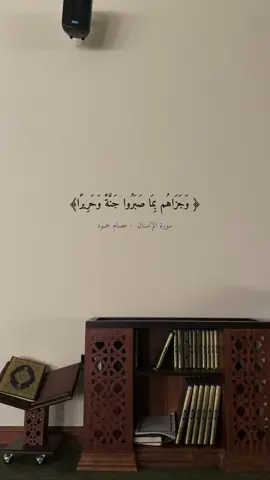 ﴿ وَجَزَاهُم بِمَا صَبَرُوا جَنَّةً وَحَرِيرًا﴾
سورة الإنسان - عصام حمود